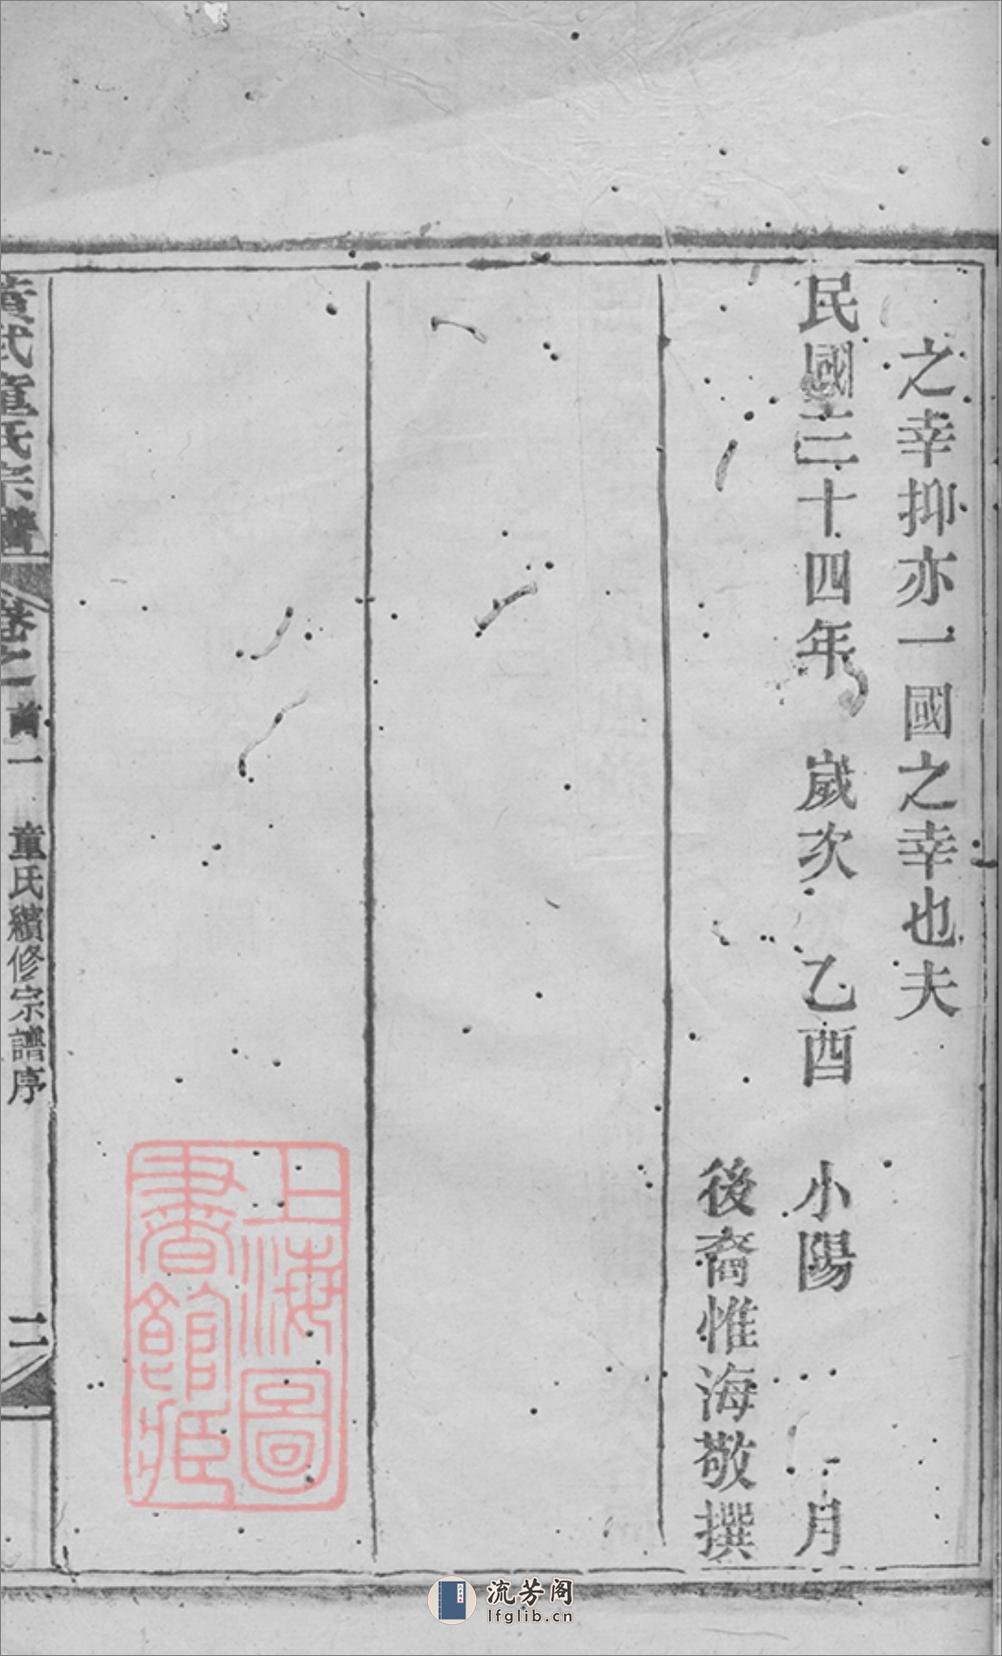 之幸抑亦一國之幸也夫
民國三十四年 歲次 乙酉 小陽 月
後裔惟海敬撰
黃武童氏宗譜 卷之首一 童氏續修宗譜序 二
上海圖書館藏
流芳阁
lfglib.cn